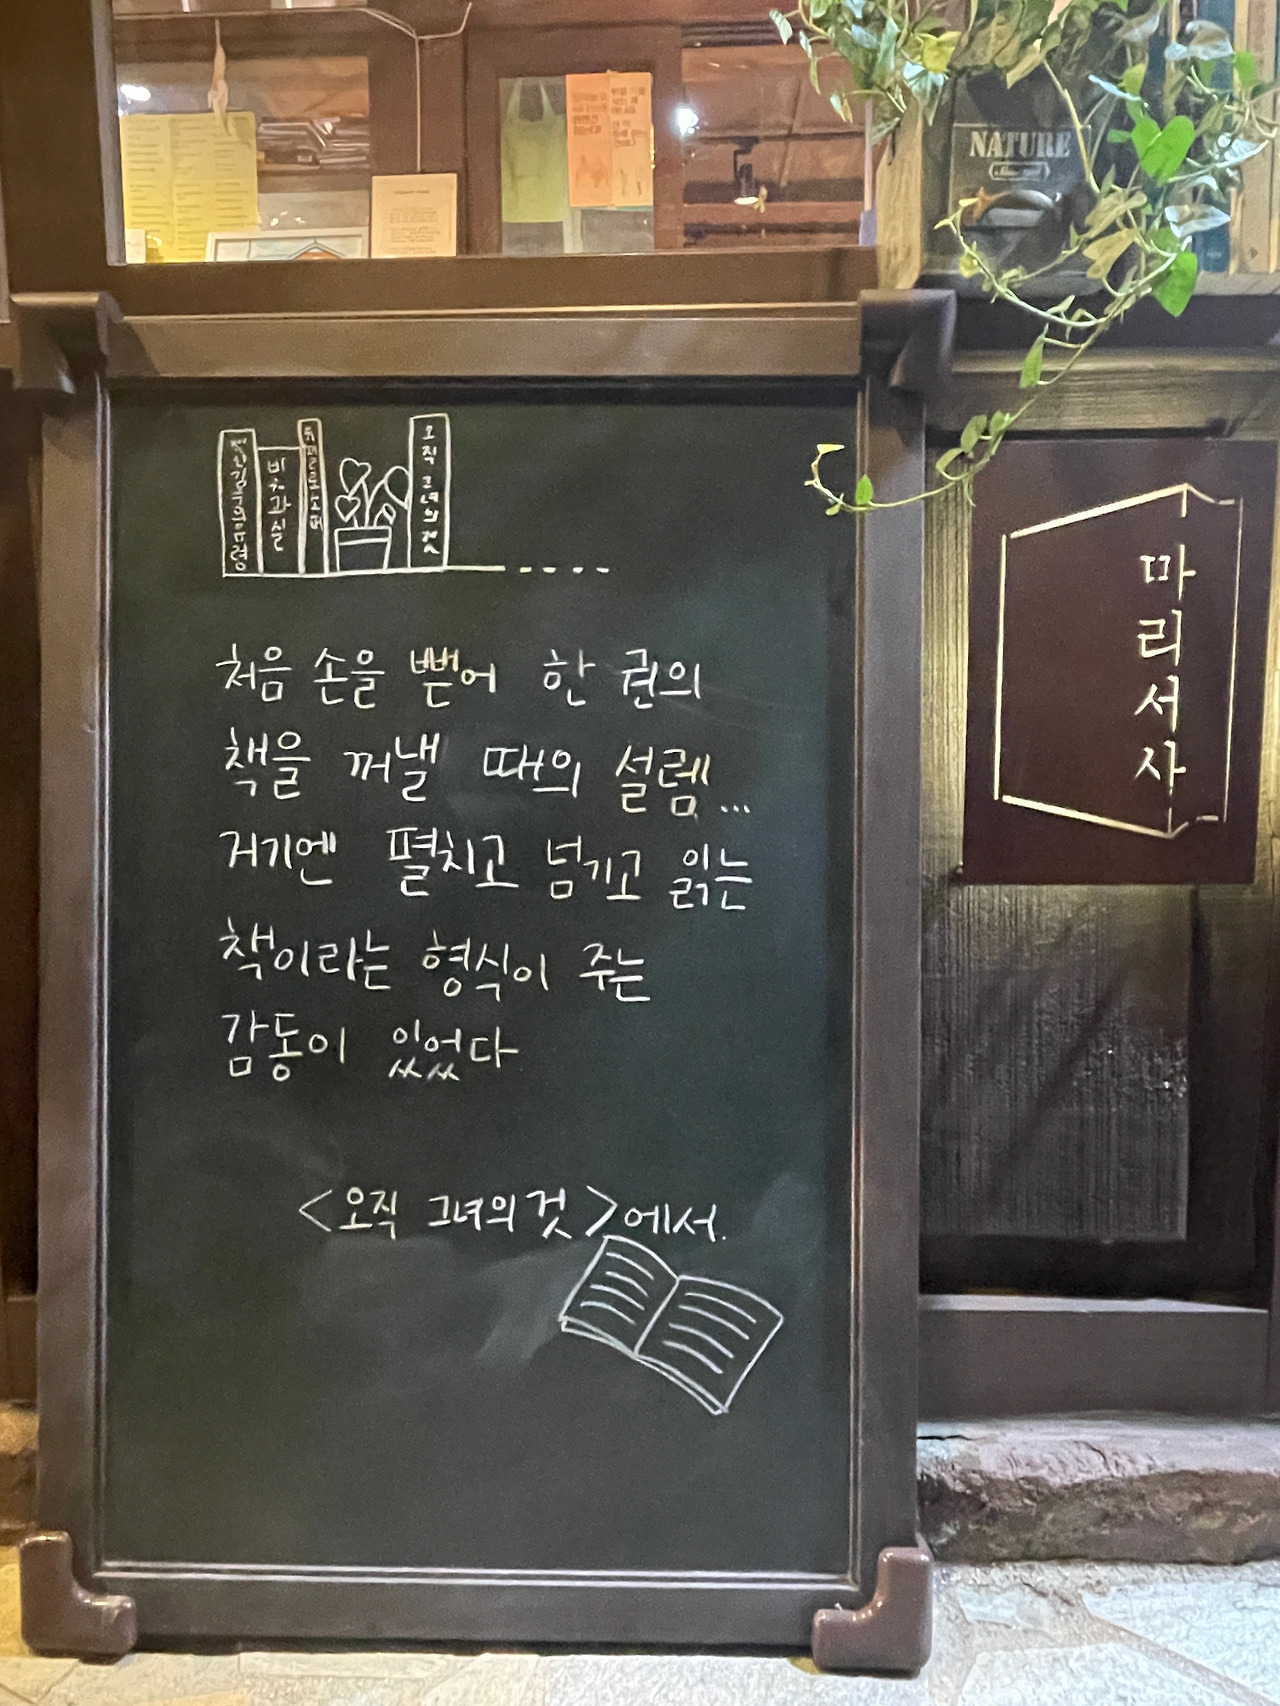 NATURE
오직 그녀의 것
처음 손을 뻗어 한 권의
책을 꺼낼 때의 설렘...
거기엔 펼치고 넘기고 읽는
책이라는 형식이 주는
감동이 있었다
<오직 그녀의 것>에서.
마리서사